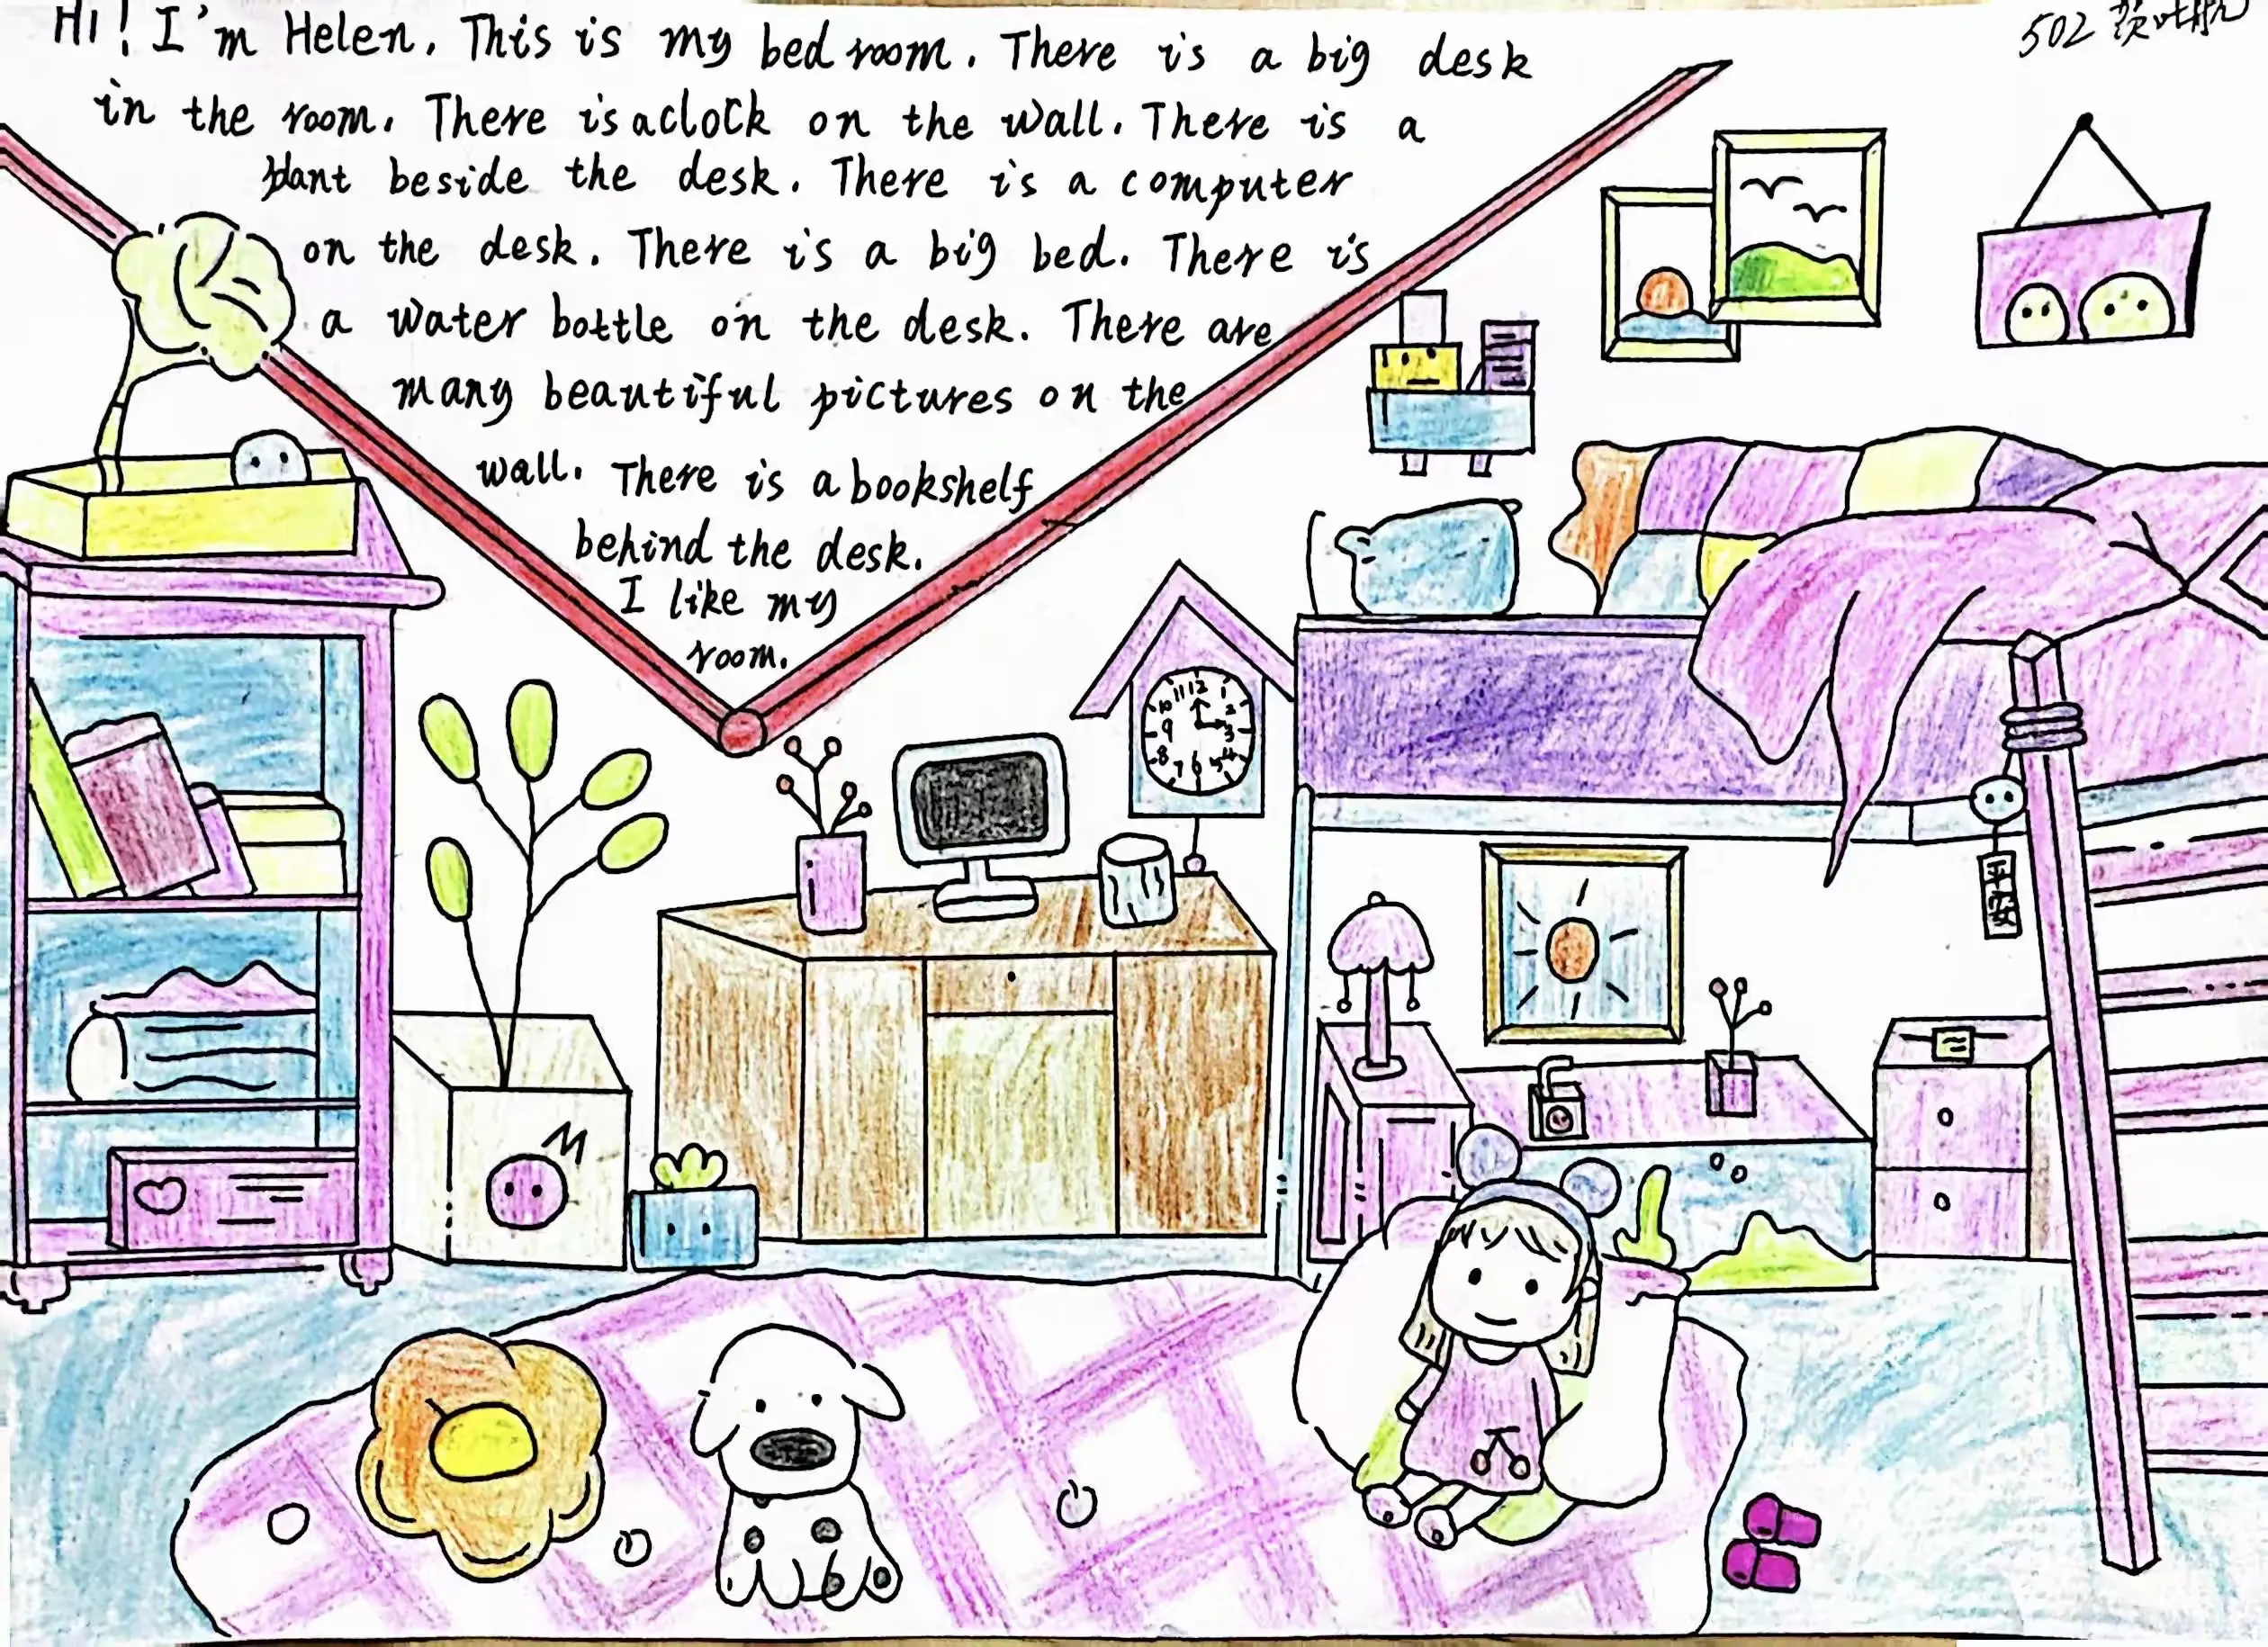 Hi! I'm Helen. This is my bed room. There is a big desk
502
in the room. There is a clock on the wall. There is a
plant beside the desk. There is a computer
on the desk. There is a big bed. There is
a water bottle on the desk. There are
many beautiful pictures on the
wall. There is a bookshelf
behind the desk.
I like my
room.
11 12 1
10 2
9 3
8 4
7 6 5
平安
M